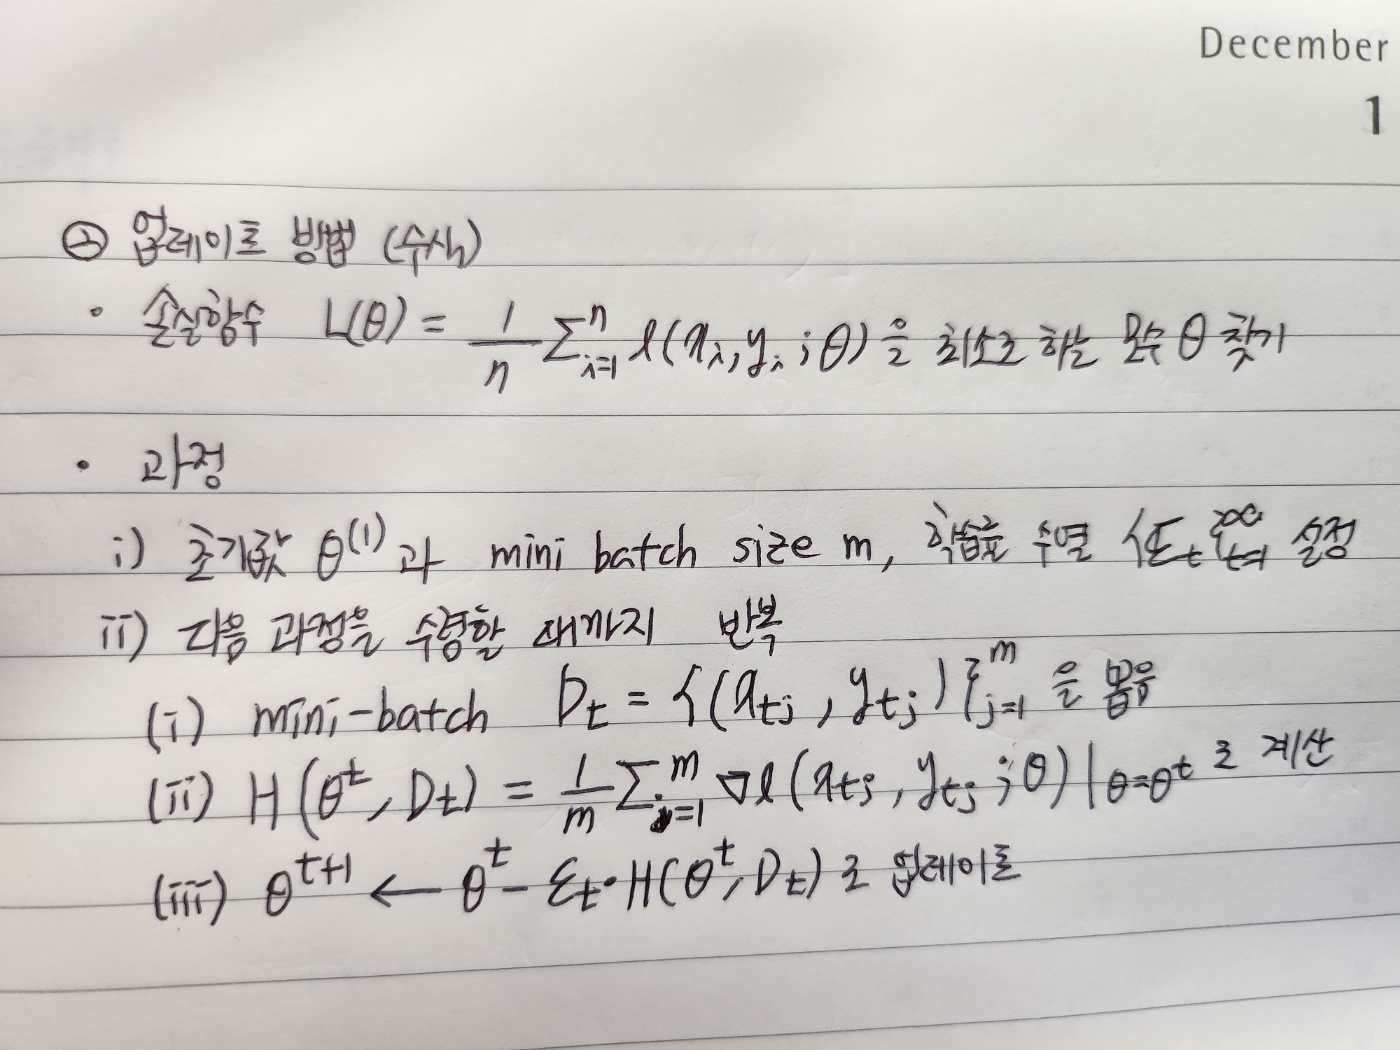 December
1
㉠ 업데이트 방법 (수식)
· 손실함수 L(θ) = 1/n Σⁿᵢ₌₁ l(xᵢ, yᵢ ; θ) 을 최소로 하는 모수 θ 찾기
· 과정
i) 초기값 θ⁽¹⁾과 mini batch size m, 학습률 수열 {εₜ}^∞ₜ₌₁ 설정
ii) 다음 과정을 수렴할 때까지 반복
(i) mini-batch Dₜ = {(x_tj, y_tj)}ᵐⱼ₌₁ 을 뽑음
(ii) H(θᵗ, Dₜ) = 1/m Σᵐⱼ₌₁ ∇l(x_tj, y_tj ; θ)|θ=θᵗ 로 계산
(iii) θᵗ⁺¹ ← θᵗ - εₜ·H(θᵗ, Dₜ) 로 업데이트